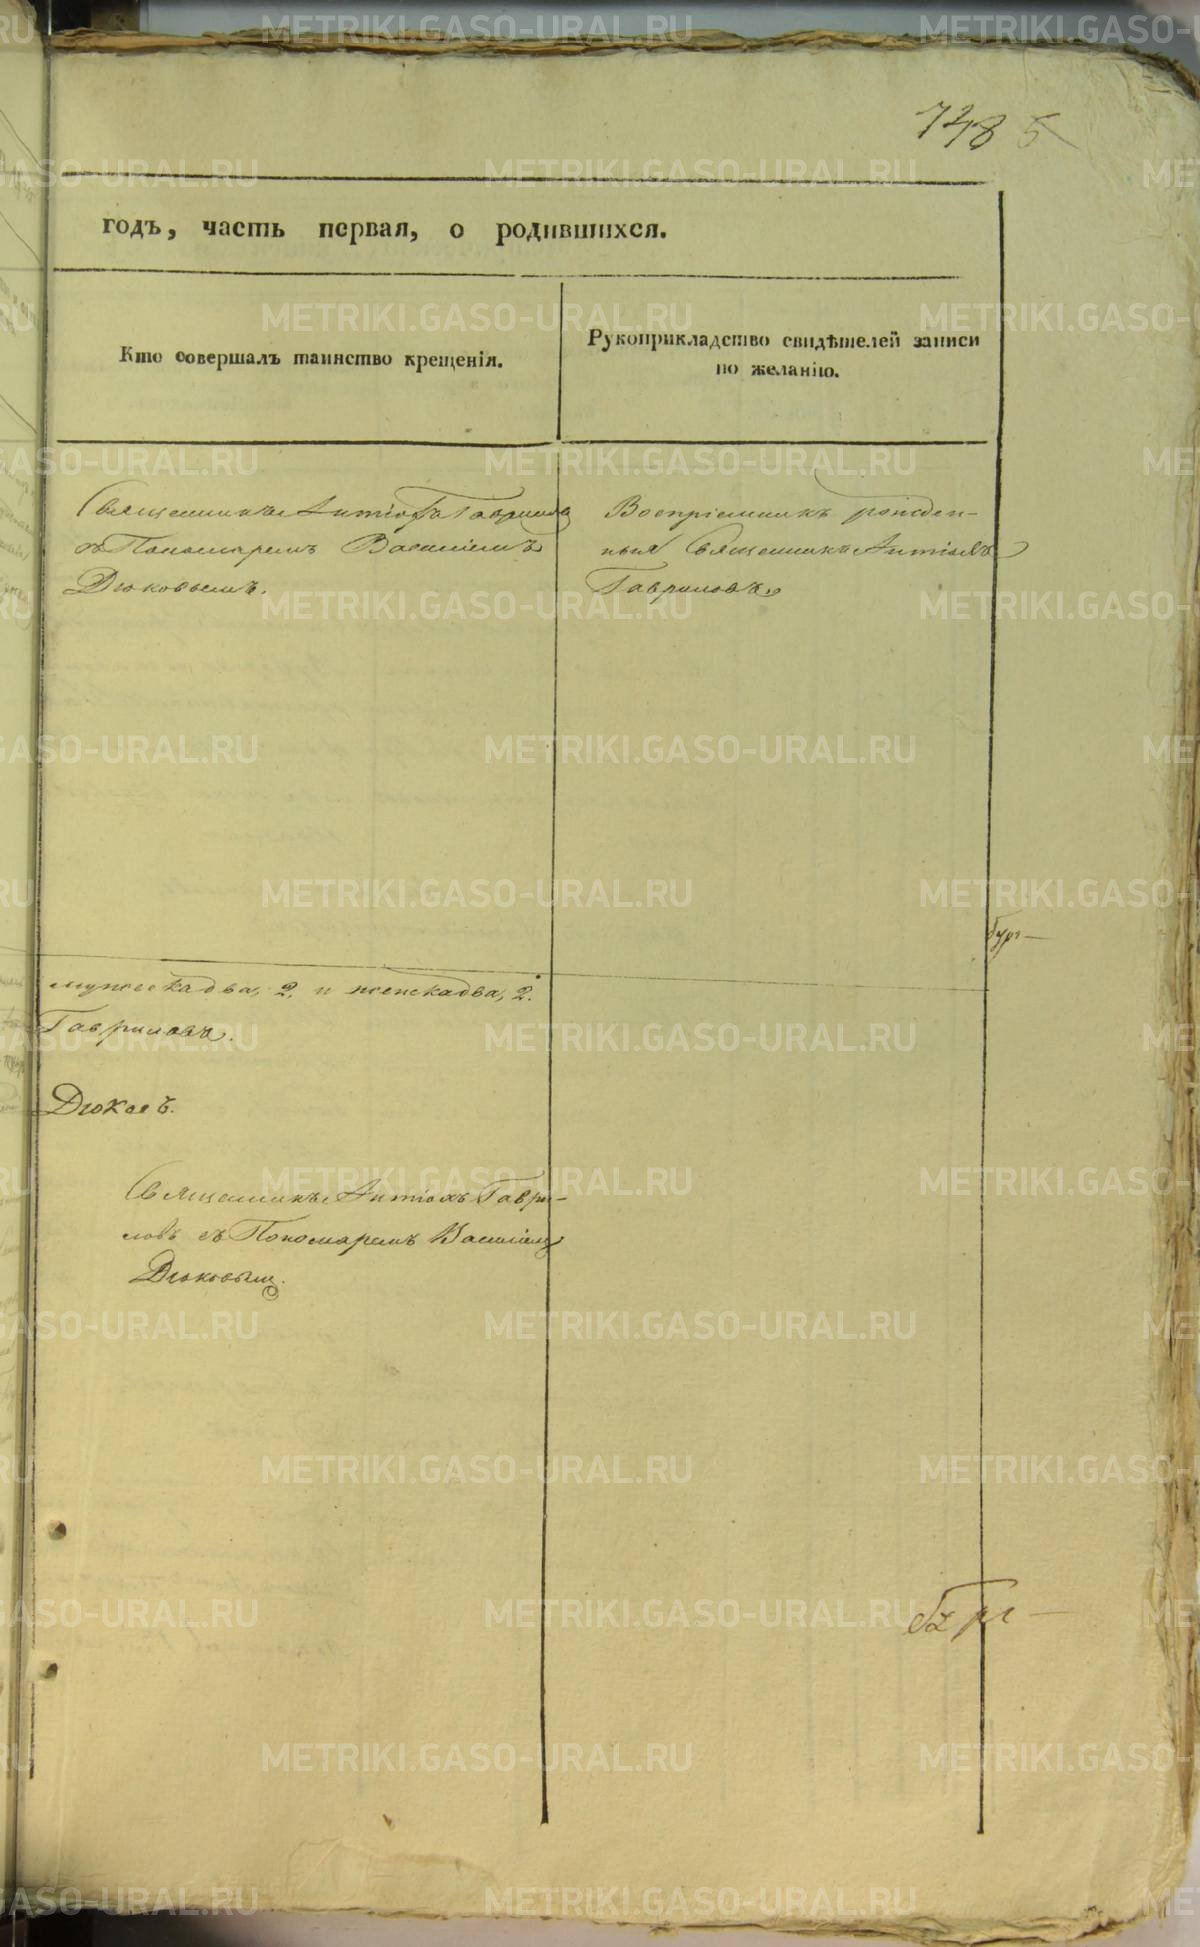 748 5
годъ, часть первая, о родившихся.
Кто совершалъ таинство крещенія.
Рукоприкладство свидѣтелей записи
по желанію.
Священникъ Антіохъ Гавриловъ
съ Пономаремъ Василіемъ
Дюковымъ.
Воспріемникъ рожден-
ныя Священникъ Антіохъ
Гавриловъ
мужеска два, 2. и женска два, 2.
Гавриловъ.
Дюковъ.
Священникъ Антіохъ Гаври-
ловъ съ Пономаремъ Василіемъ
Дюковымъ.
METRIKI.GASO-URAL.RU